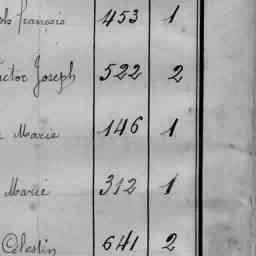 françois 453 1
Joseph 522 2
Marie 146 1
Marie 312 1
Celestin 641 2